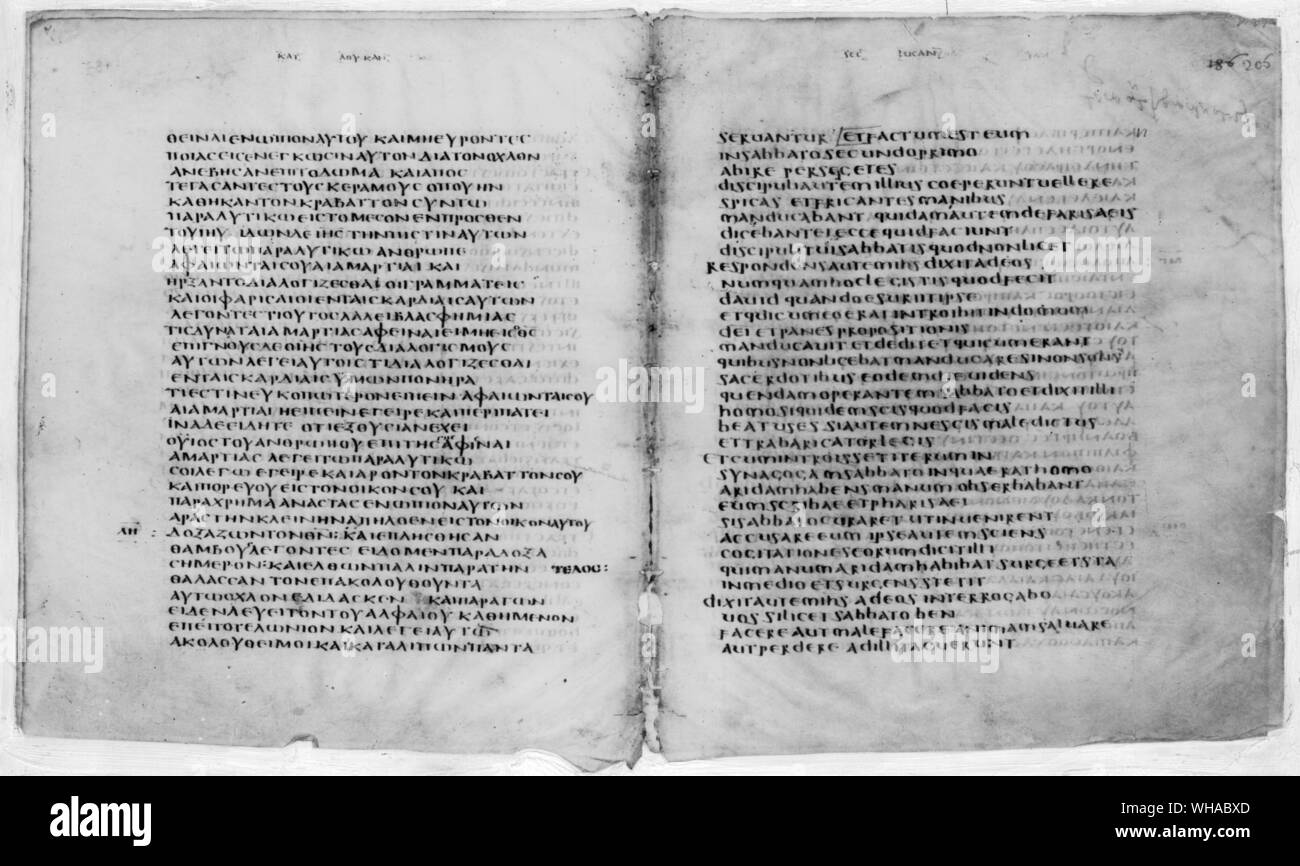 ΚΑΤ ΛΟΥΚΑΝ
ΘΕΙΝΑΙ ΕΝΩΠΙΟΝ ΑΥΤΟΥ ΚΑΙ ΜΗ ΕΥΡΟΝΤΕΣ
ΠΟΙΑΣ ΕΙΣΕΝΕΓΚΩΣΙΝ ΑΥΤΟΝ ΔΙΑ ΤΟΝ ΟΧΛΟΝ
ΑΝΕΒΗΣΑΝ ΕΠΙ ΤΟ ΔΩΜΑ ΚΑΙ ΑΠΟΣ
ΤΕΓΑΣΑΝΤΕΣ ΤΟΥΣ ΚΕΡΑΜΟΥΣ ΟΠΟΥ ΗΝ
ΚΑΘΗΚΑΝ ΤΟΝ ΚΡΑΒΑΤΤΟΝ ΣΥΝ ΤΩ
ΠΑΡΑΛΥΤΙΚΩ ΕΙΣ ΤΟ ΜΕΣΟΝ ΕΝΠΡΟΣΘΕΝ
ΤΟΥ ΙΗΥ ΙΔΩΝ ΔΕ ΙΗΣ ΤΗΝ ΠΙΣΤΙΝ ΑΥΤΩΝ
ΛΕΓΕΙ ΤΩ ΠΑΡΑΛΥΤΙΚΩ ΑΝΘΡΩΠΕ
ΑΦΑΙΩΝΤΑΙ ΣΟΥ ΑΙ ΑΜΑΡΤΙΑΙ ΚΑΙ
ΗΡΞΑΝΤΟ ΔΙΑΛΟΓΙΖΕΣΘΑΙ ΟΙ ΓΡΑΜΜΑΤΕΙΣ
ΚΑΙ ΟΙ ΦΑΡΙΣΑΙΟΙ ΕΝ ΤΑΙΣ ΚΑΡΔΙΑΙΣ ΑΥΤΩΝ
ΛΕΓΟΝΤΕΣ ΤΙ ΟΥΤΟΣ ΛΑΛΕΙ ΒΛΑΣΦΗΜΙΑΣ
ΤΙΣ ΔΥΝΑΤΑΙ ΑΜΑΡΤΙΑΣ ΑΦΕΙΝΑΙ ΕΙ ΜΗ ΕΙΣ ΘΣ
ΕΠΙΓΝΟΥΣ ΔΕ Ο ΙΗΣ ΤΟΥΣ ΔΙΑΛΟΓΙΣΜΟΥΣ
ΑΥΤΩΝ ΛΕΓΕΙ ΑΥΤΟΙΣ ΤΙ ΔΙΑΛΟΓΙΖΕΣΘΑΙ
ΕΝ ΤΑΙΣ ΚΑΡΔΙΑΙΣ ΥΜΩΝ ΠΟΝΗΡΑ
ΤΙ ΕΣΤΙΝ ΕΥΚΟΠΩΤΕΡΟΝ ΕΠΕΙΝ ΑΦΑΙΩΝΤΑΙ ΣΟΥ
ΑΙ ΑΜΑΡΤΙΑΙ Η ΕΠΕΙΝ ΕΓΕΙΡΕ ΚΑΙ ΠΕΡΙΠΑΤΕΙ
ΙΝΑ ΔΕ ΕΙΔΗΤΕ ΟΤΙ ΕΞΟΥΣΙΑΝ ΕΧΕΙ
Ο ΥΙΟΣ ΤΟΥ ΑΝΘΡΩΠΟΥ ΕΠΙ ΤΗΣ ΓΗΣ ΑΦΙΝΑΙ
ΑΜΑΡΤΙΑΣ ΛΕΓΕΙ ΤΩ ΠΑΡΑΛΥΤΙΚΩ
ΣΟΙ ΛΕΓΩ ΕΓΕΙΡΕ ΚΑΙ ΑΡΟΝ ΤΟΝ ΚΡΑΒΑΤΤΟΝ ΣΟΥ
ΚΑΙ ΠΟΡΕΥΟΥ ΕΙΣ ΤΟΝ ΟΙΚΟΝ ΣΟΥ ΚΑΙ
ΠΑΡΑΧΡΗΜΑ ΑΝΑΣΤΑΣ ΕΝΩΠΙΟΝ ΑΥΤΩΝ
ΑΡΑΣ ΤΗΝ ΚΛΕΙΝΗΝ ΑΠΗΛΘΕΝ ΕΙΣ ΤΟΝ ΟΙΚΟΝ ΑΥΤΟΥ
ΛΗ : ΔΟΞΑΖΩΝ ΤΟΝ ΘΝ : ΚΑΙ ΕΠΛΗΣΘΗΣΑΝ
ΘΑΜΒΟΥ ΛΕΓΟΝΤΕΣ ΕΙΔΟΜΕΝ ΠΑΡΑΔΟΞΑ
ΣΗΜΕΡΟΝ : ΚΑΙ ΕΛΘΩΝ ΠΑΛΙΝ ΠΑΡΑ ΤΗΝ ΤΕΛΟΣ :
ΘΑΛΑΣΣΑΝ ΤΟΝ ΕΠΑΚΟΛΟΥΘΟΥΝΤΑ
ΑΥΤΩ ΟΧΛΟΝ ΕΔΙΔΑΣΚΕΝ ΚΑΙ ΠΑΡΑΓΩΝ
ΕΙΔΕΝ ΛΕΥΕΙ ΤΟΝ ΤΟΥ ΑΛΦΑΙΟΥ ΚΑΘΗΜΕΝΟΝ
ΕΠΙ ΤΟ ΤΕΛΩΝΙΟΝ ΚΑΙ ΛΕΓΕΙ ΑΥΤΩ
ΑΚΟΛΟΥΘΕΙ ΜΟΙ ΚΑΙ ΚΑΤΑΛΙΠΩΝ ΠΑΝΤΑ
SEC LUCAN
186 206
seruantur et factum est eum
in sabbato secundo primo
abire per segetes
discipuli autem illius coeperunt uellere
spicas et fricantes manibus
manducabant quidam autem de farisaeis
dicebant ei ecce quid faciunt
discipuli tui sabbatis quod non licet
respondens autem ihs dixit ad eos
numquam hoc legistis quod fecit
dauid quando esuriit ipse
et qui cum eo erat introibit in domum
dei et panes propositionis
manducauit et dedit et qui cum erant
quibus non licebat manducare si non solis
sacerdotibus eodem die uidens
quendam operantem sabbato et dixit illi
homo siquidem scis quod facis
beatus es si autem nescis maledictus
et trabaricator legis
et cum introisset iterum in
synagogam sabbato in qua erat homo
aridam habens manum obserbabant
eum scribae et pharisaei
si sabbato curaret ut inuenirent
accusare eum ipse autem sciens
cogitationes eorum dicit illi
qui manum aridam habibat surge et sta
in medio et surgens stetit
dixit autem ihs ad eos interrogabo
uos si licet sabbato ben
facere aut male facere animam saluare
aut perdere ad illi tacuerunt
alamy
Image ID: WHABXD
www.alamy.com